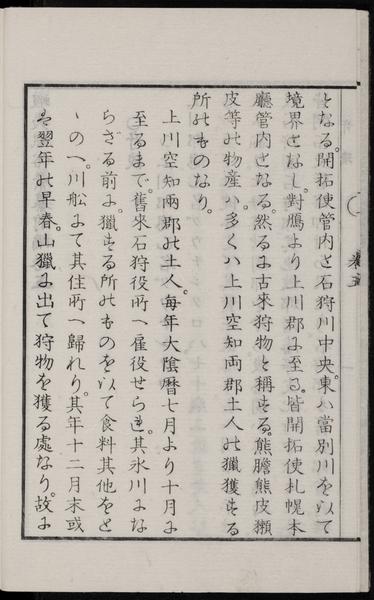 となる。開拓使管内と石狩川中央。東ハ當別川を以て
境界となし。對鴈より上川郡に至る。皆開拓使札幌本
廳管内となる。然るに古來狩物と稱する。熊膽熊皮獺
皮等の物産ハ。多くハ上川空知両郡土人の獵獲する
所のものなり。
上川空知兩郡の土人。每年大陰暦七月より十月に
至るまで。舊來石狩役所へ雇役せられ。其氷川にな
らざる前に。獵する所のものを以て食料其他をと
ゝのへ。川舩にて其住所へ歸れり。其年十二月末或
は翌年の早春。山獵に出て狩物を獲る處なり。故に